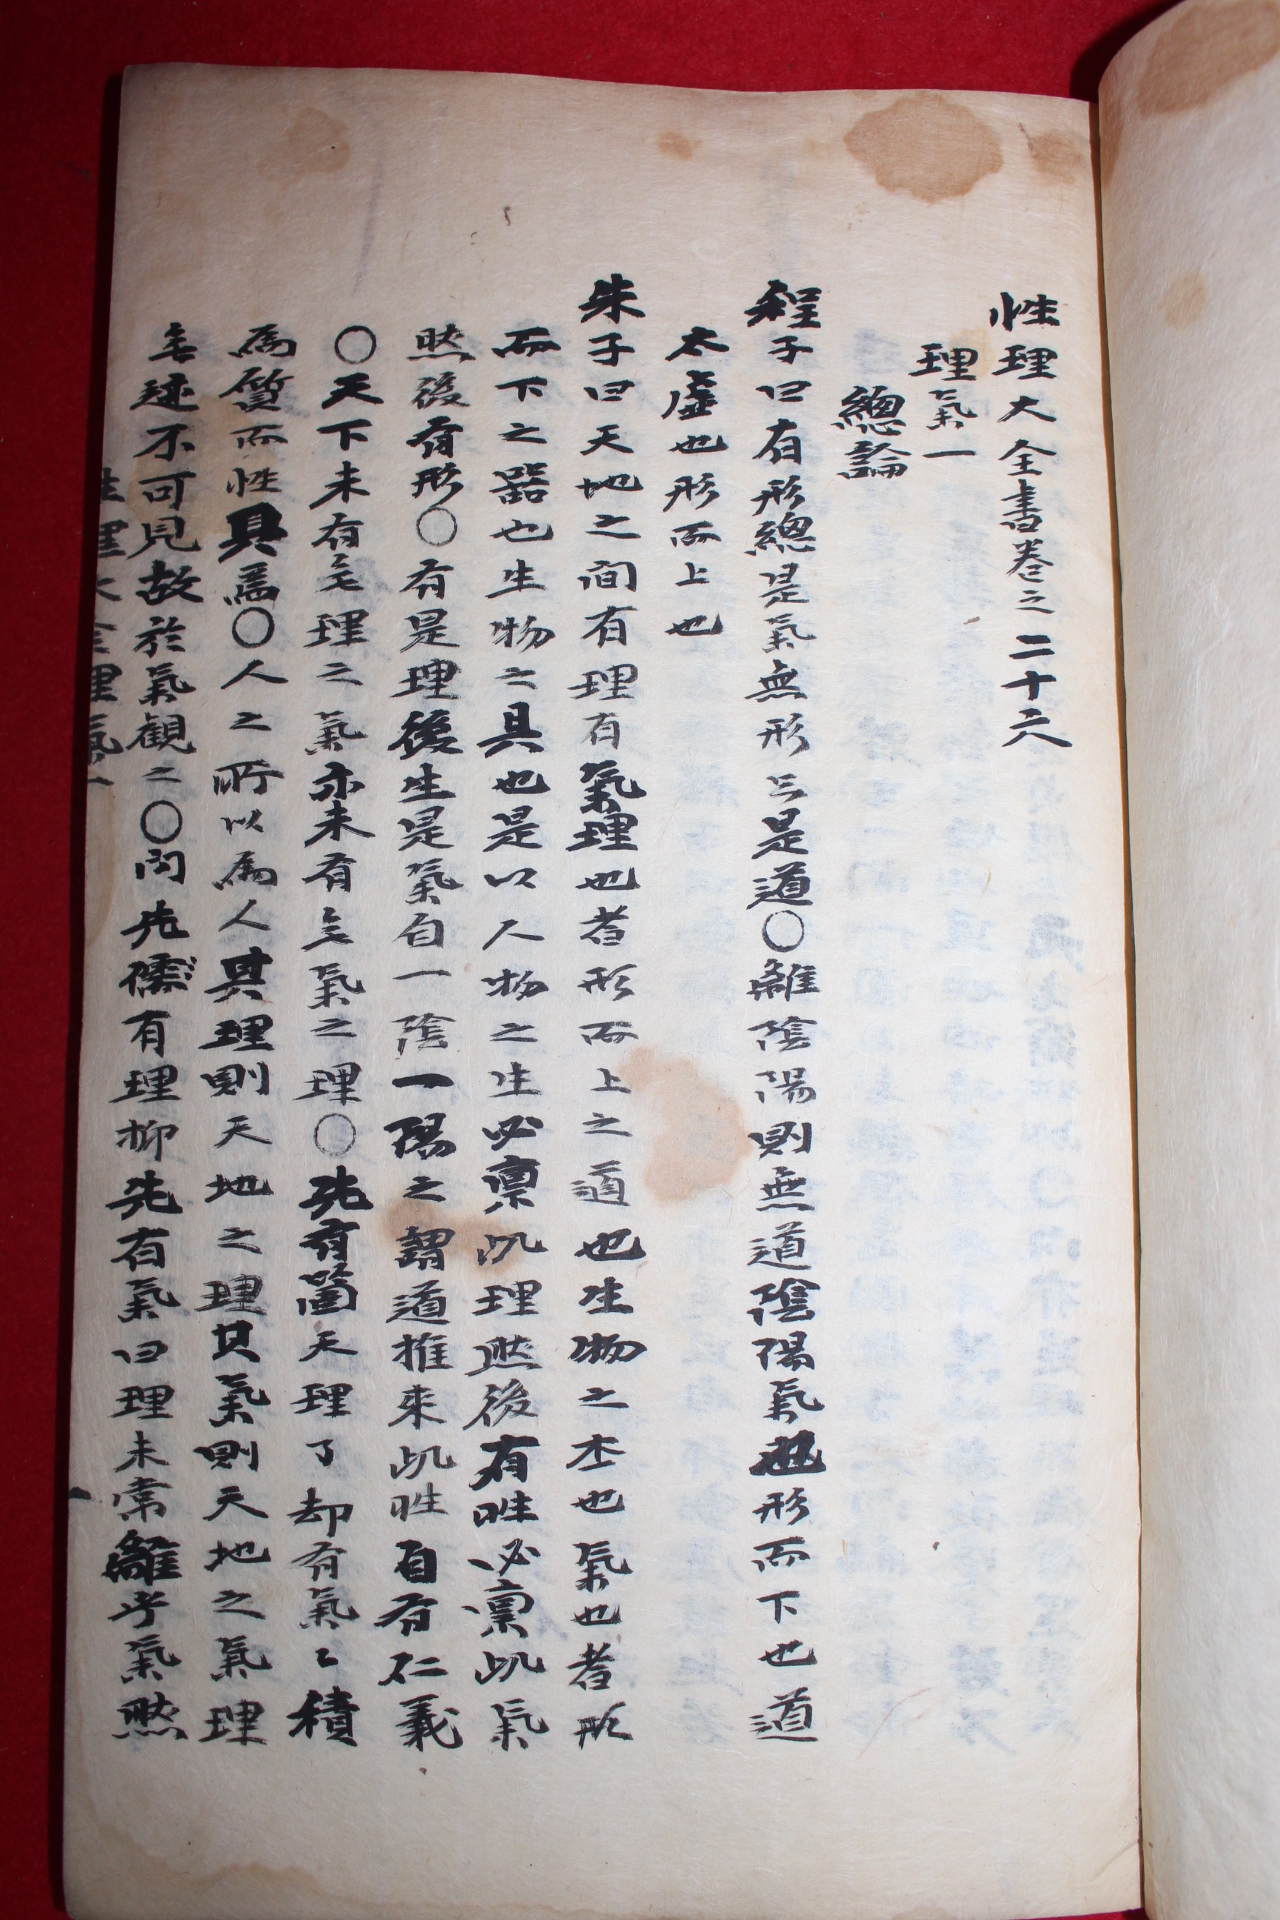 性理大全書卷之二十六
理氣一
總論
程子曰有形總是氣無形只是道○離陰陽則無道陰陽氣也形而下也道
太虛也形而上也
朱子曰天地之间有理有氣理也者形而上之道也生物之本也氣也者形
而下之器也生物之具也是以人物之生必禀此理然後有性必禀此氣
然後有形○有是理後生是氣自一陰一陽之謂道推來此性自有仁義
○天下未有无理之氣亦未有无氣之理○先有箇天理了却有氣〻積
為質而性具焉○人之所以為人其理則天地之理其氣則天地之氣理
无迹不可見故於氣観之○问先儒有理抑先有氣曰理未常離乎氣然
性理大全理氣一